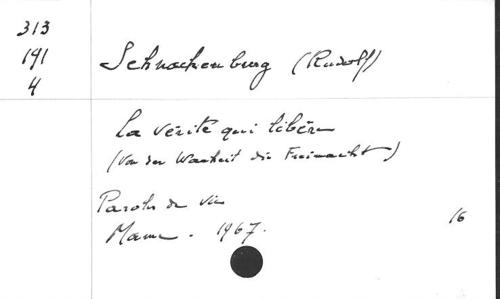 313
191
4
Schnackenburg (Rudolf)
La vérité qui libère
(Von der Warheit die Freimacht)
Parole de vie
Mame. 1967.
16